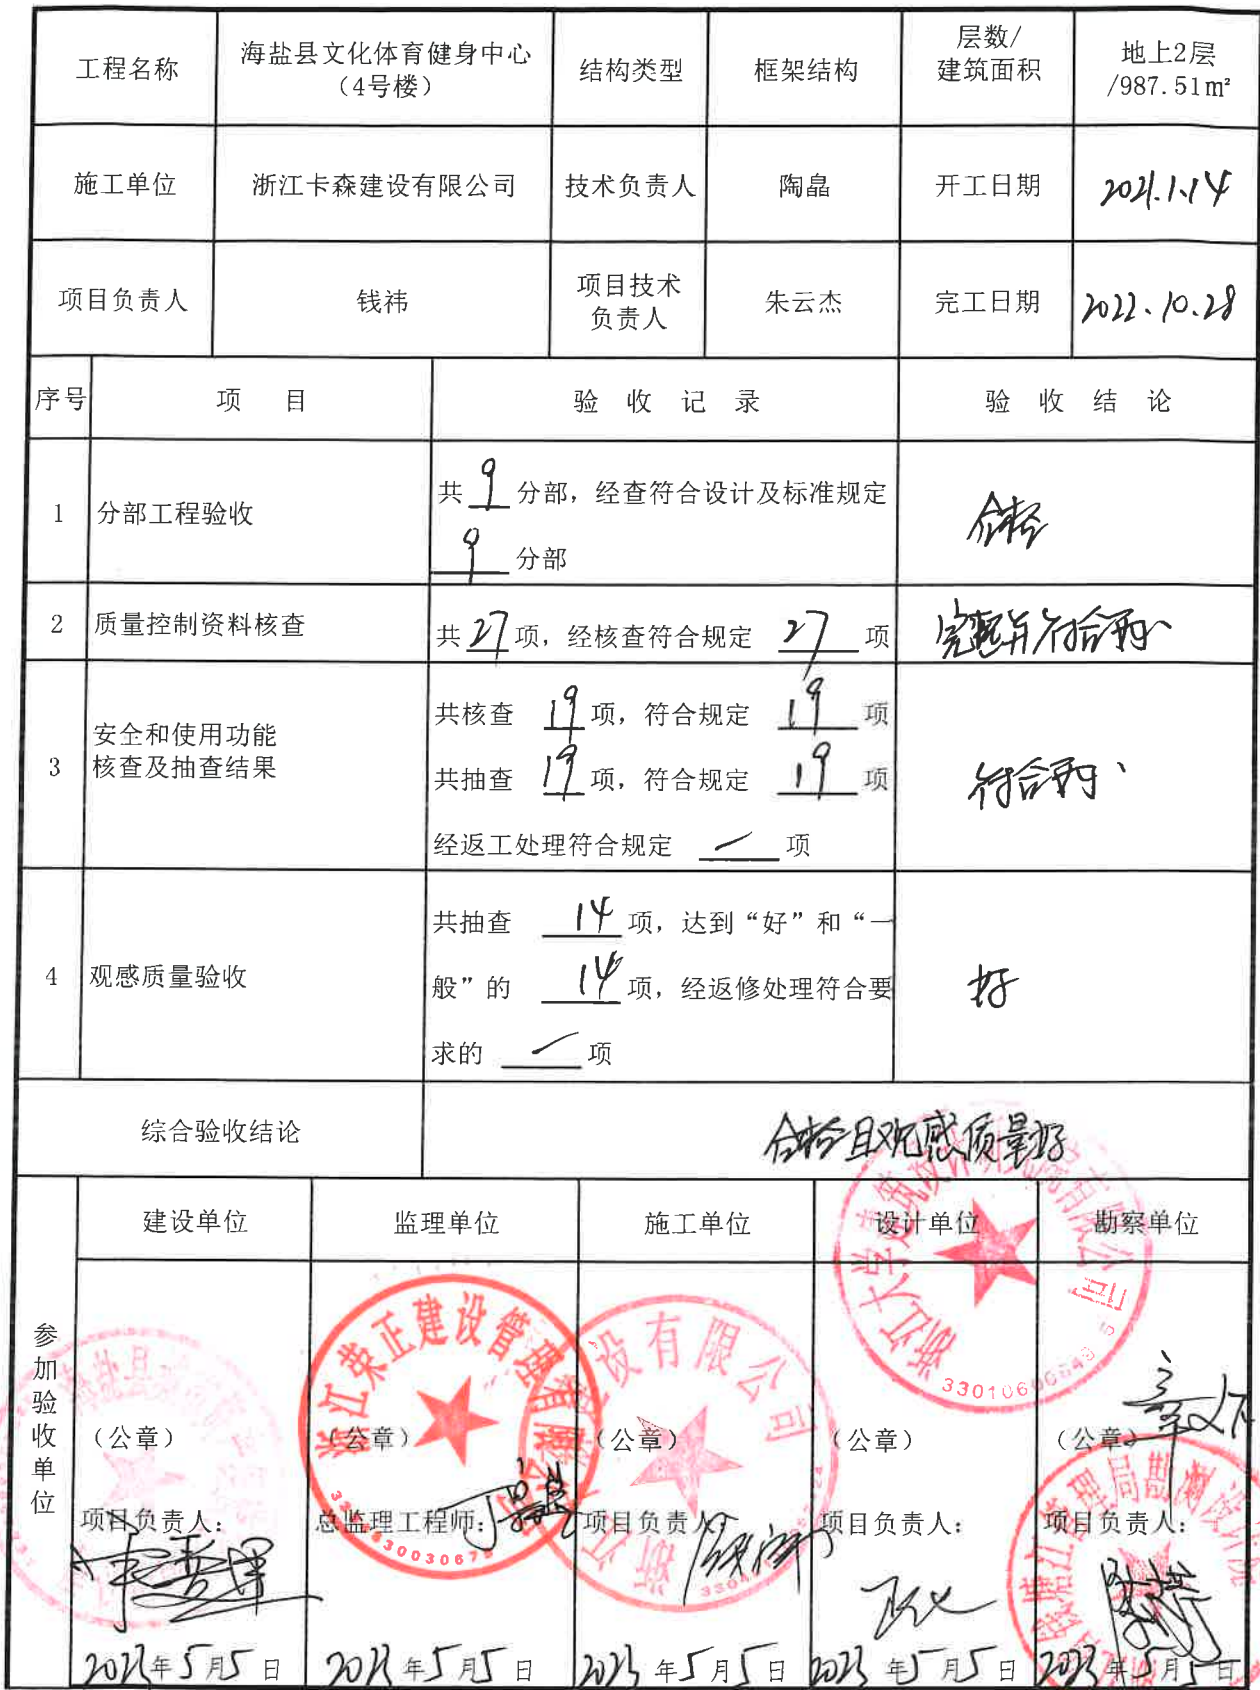 工程名称 海盐县文化体育健身中心（4号楼） 结构类型 框架结构 层数/建筑面积 地上2层/987.51m²
施工单位 浙江卡森建设有限公司 技术负责人 陶皛 开工日期 2021.1.14
项目负责人 钱祎 项目技术负责人 朱云杰 完工日期 2022.10.28
序号 项 目 验 收 记 录 验 收 结 论
1 分部工程验收 共 9 分部，经查符合设计及标准规定
9 分部 合格
2 质量控制资料核查 共 27 项，经核查符合规定 27 项 完整并符合要求
3 安全和使用功能
核查及抽查结果
共核查 19 项，符合规定 19 项
共抽查 19 项，符合规定 19 项
经返工处理符合规定 / 项
符合要求
4 观感质量验收
共抽查 14 项，达到“好”和“一
般”的 14 项，经返修处理符合要
求的 / 项
好
综合验收结论 合格且观感质量好
参加验收单位
建设单位 监理单位 施工单位 设计单位 勘察单位
（公章） （公章） （公章） （公章） （公章）
项目负责人： 总监理工程师： 项目负责人 项目负责人： 项目负责人：
2023年5月5日 2023年5月5日 2023年5月5日 2023年5月5日 2023年5月5日
浙江荣正建设管理有限公司
设有限公司